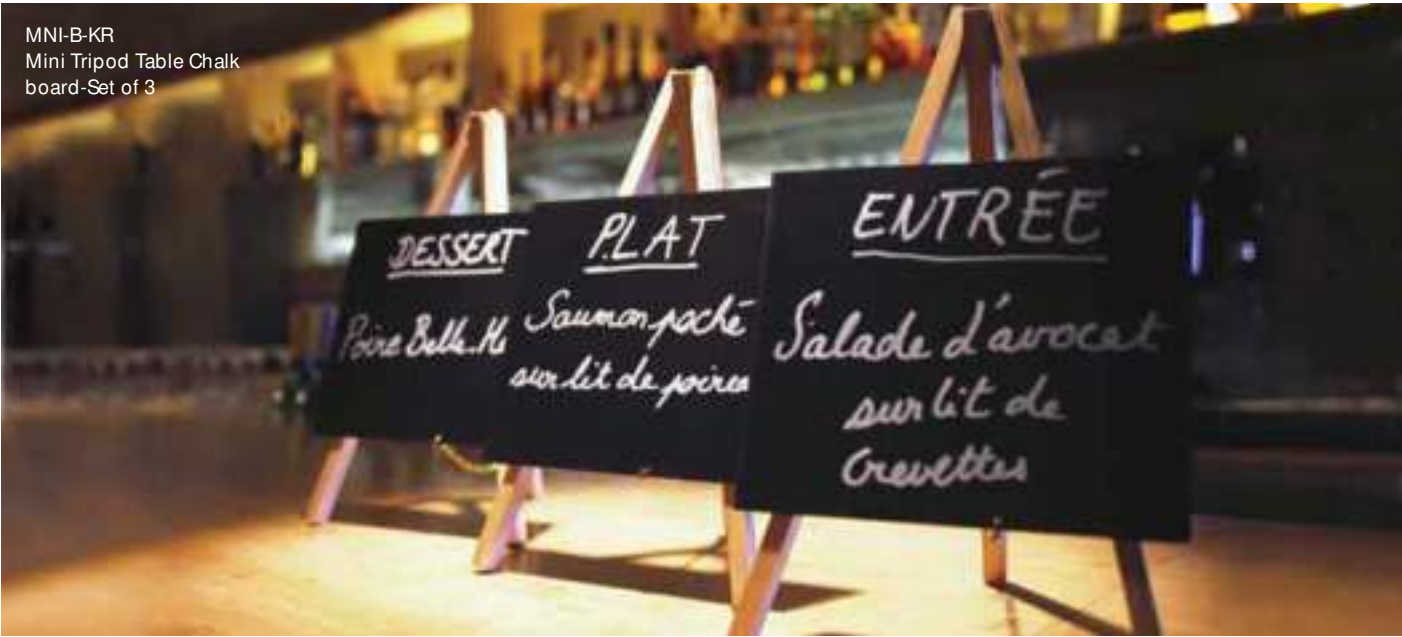 MNI-B-KR
Mini Tripod Table Chalk
board-Set of 3
DESSERT
Poire Belle-He
PLAT
Saumon poché
sur lit de poires
ENTRÉE
Salade d'avocat
sur lit de
Crevettes